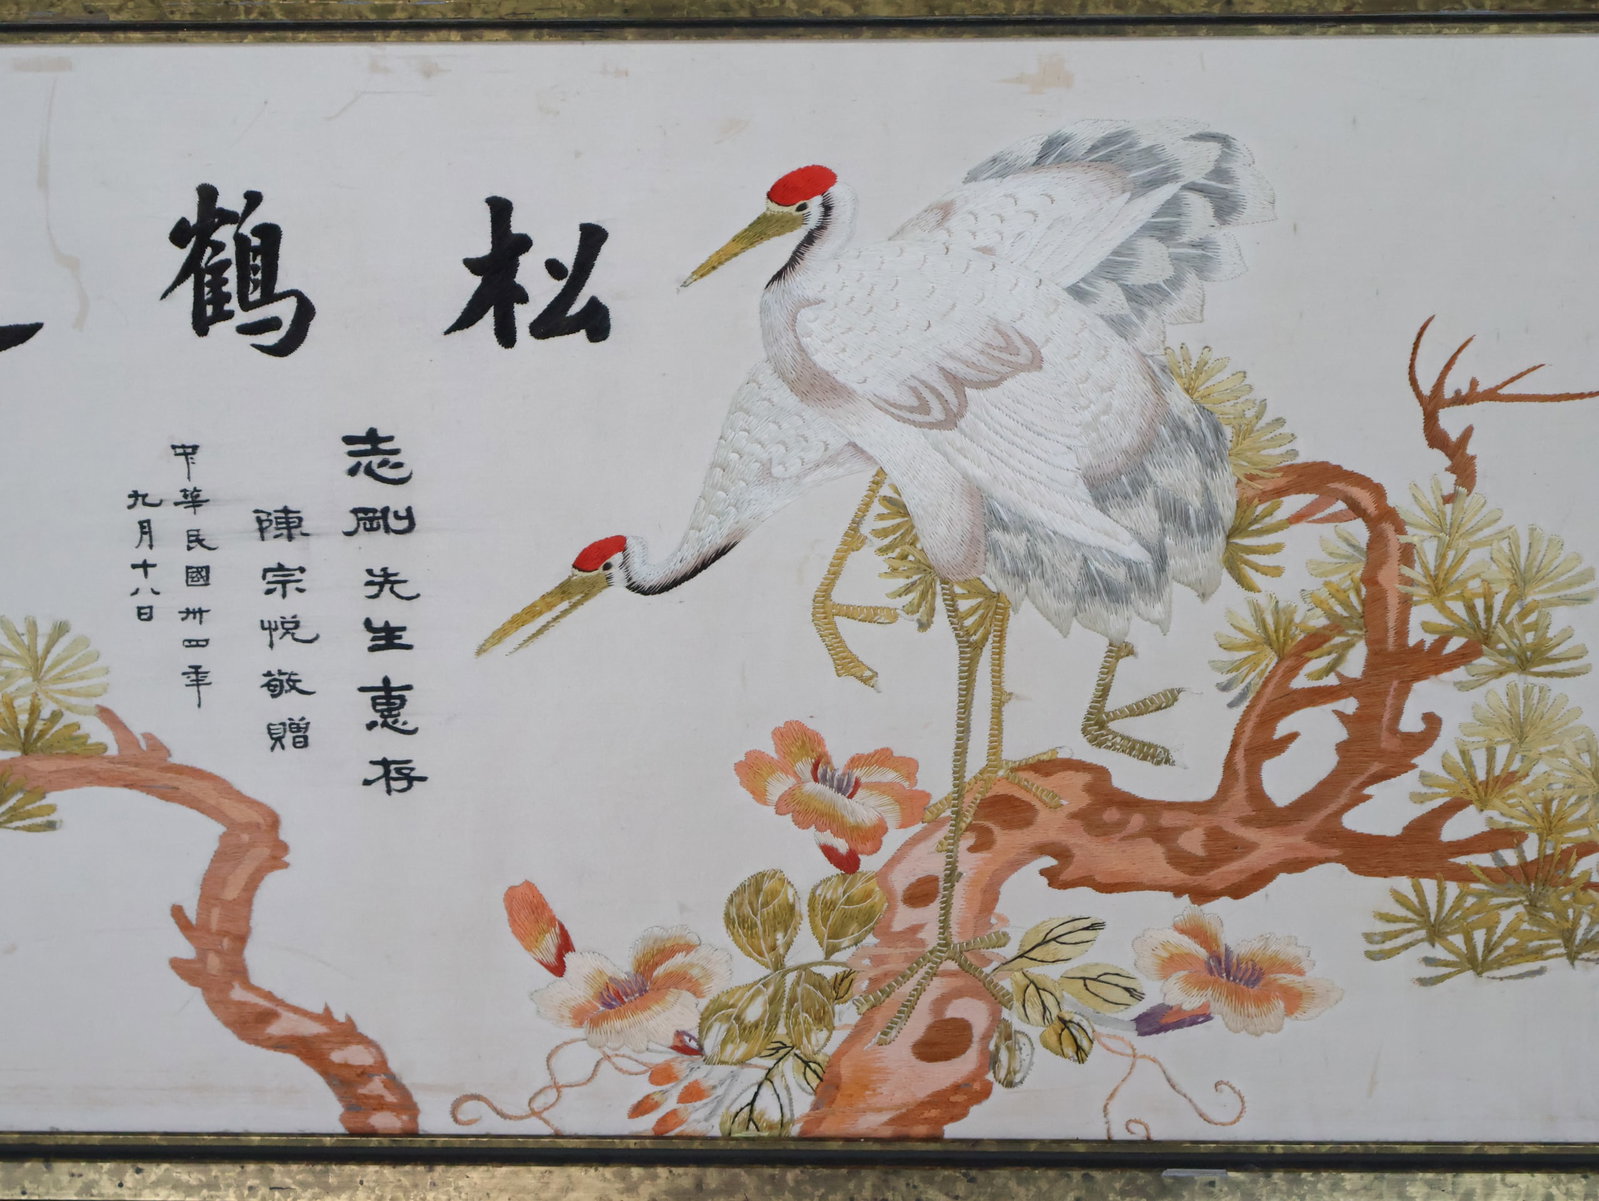 松鶴
志剛先生惠存
陳宗悅敬贈
中華民國卅四年
九月十八日